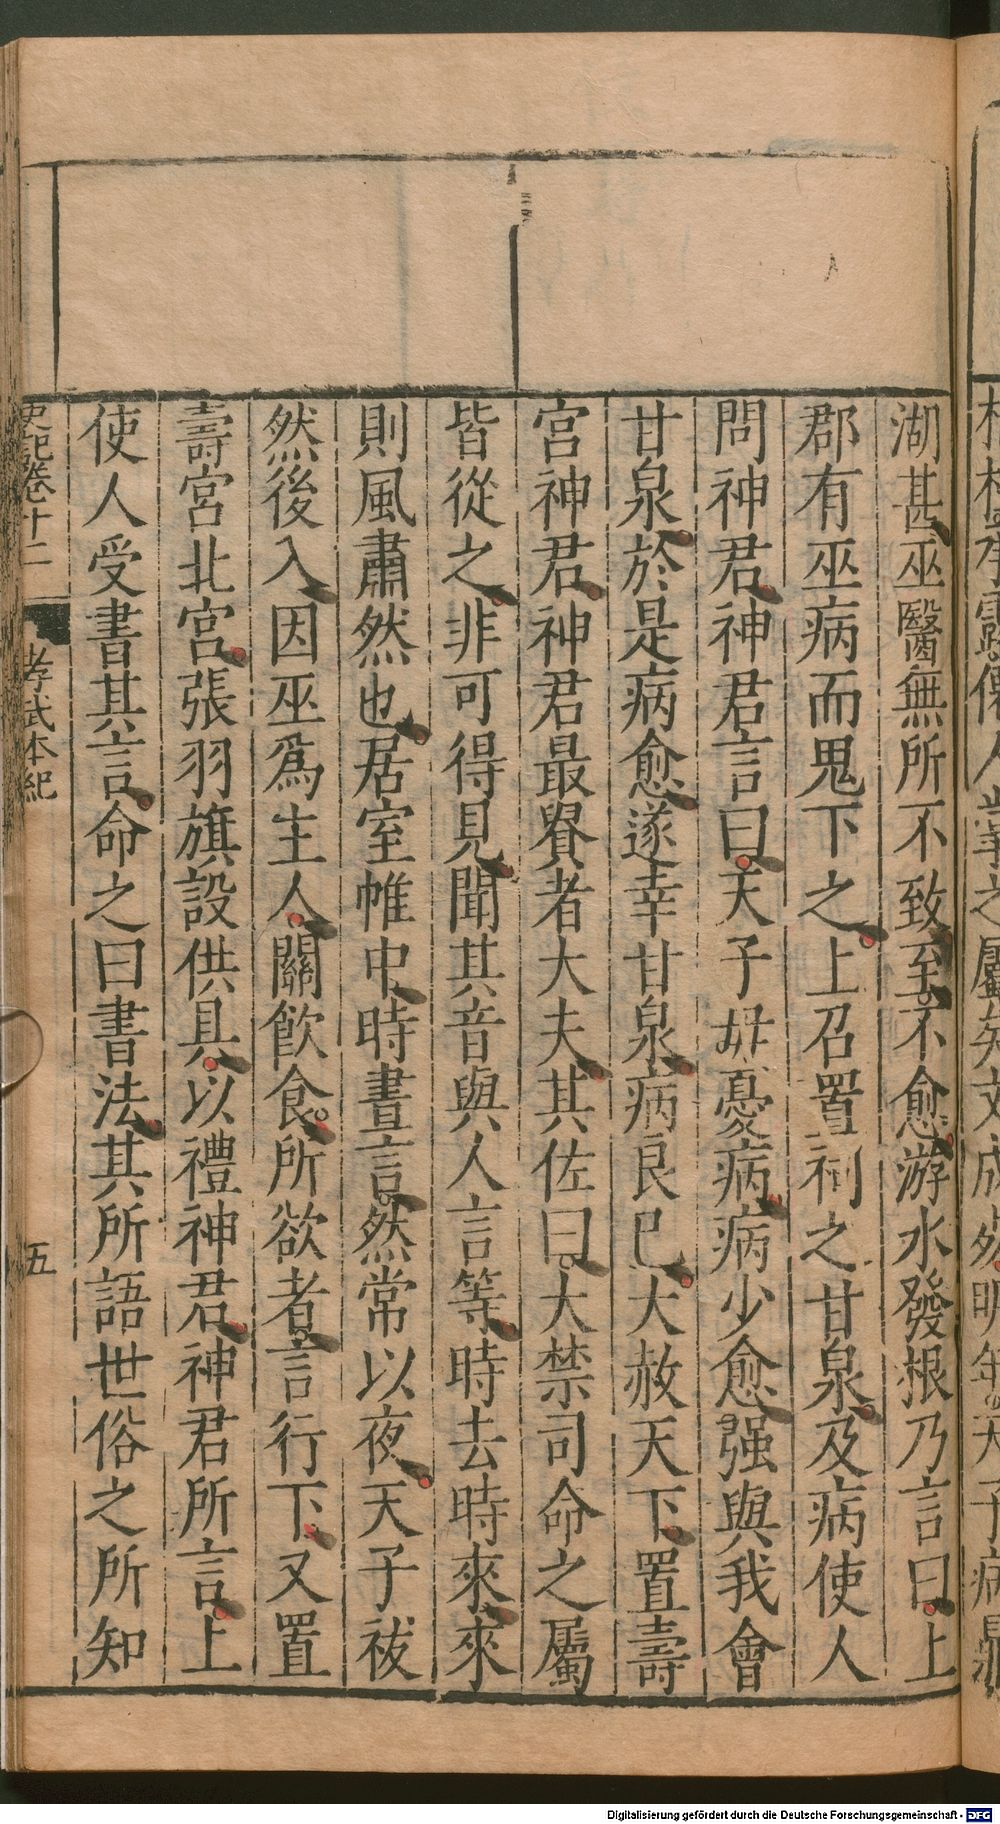 湖甚巫醫無所不致至不愈游水發根乃言曰上
郡有巫病而鬼下之上召置祠之甘泉及病使人
問神君神君言曰天子毋憂病病少愈强與我會
甘泉於是病愈遂幸甘泉病良已大赦天下置壽
宮神君神君最貴者大夫其佐曰大禁司命之屬
皆從之非可得見聞其音與人言等時去時來來
則風肅然也居室帷中時晝言然常以夜天子祓
然後入因巫爲主人關飲食所欲者言行下又置
壽宮北宮張羽旗設供具以禮神君神君所言上
使人受書其言命之曰書法其所語世俗之所知
史記卷十二 孝武本紀 五
Digitalisierung gefördert durch die Deutsche Forschungsgemeinschaft - DFG